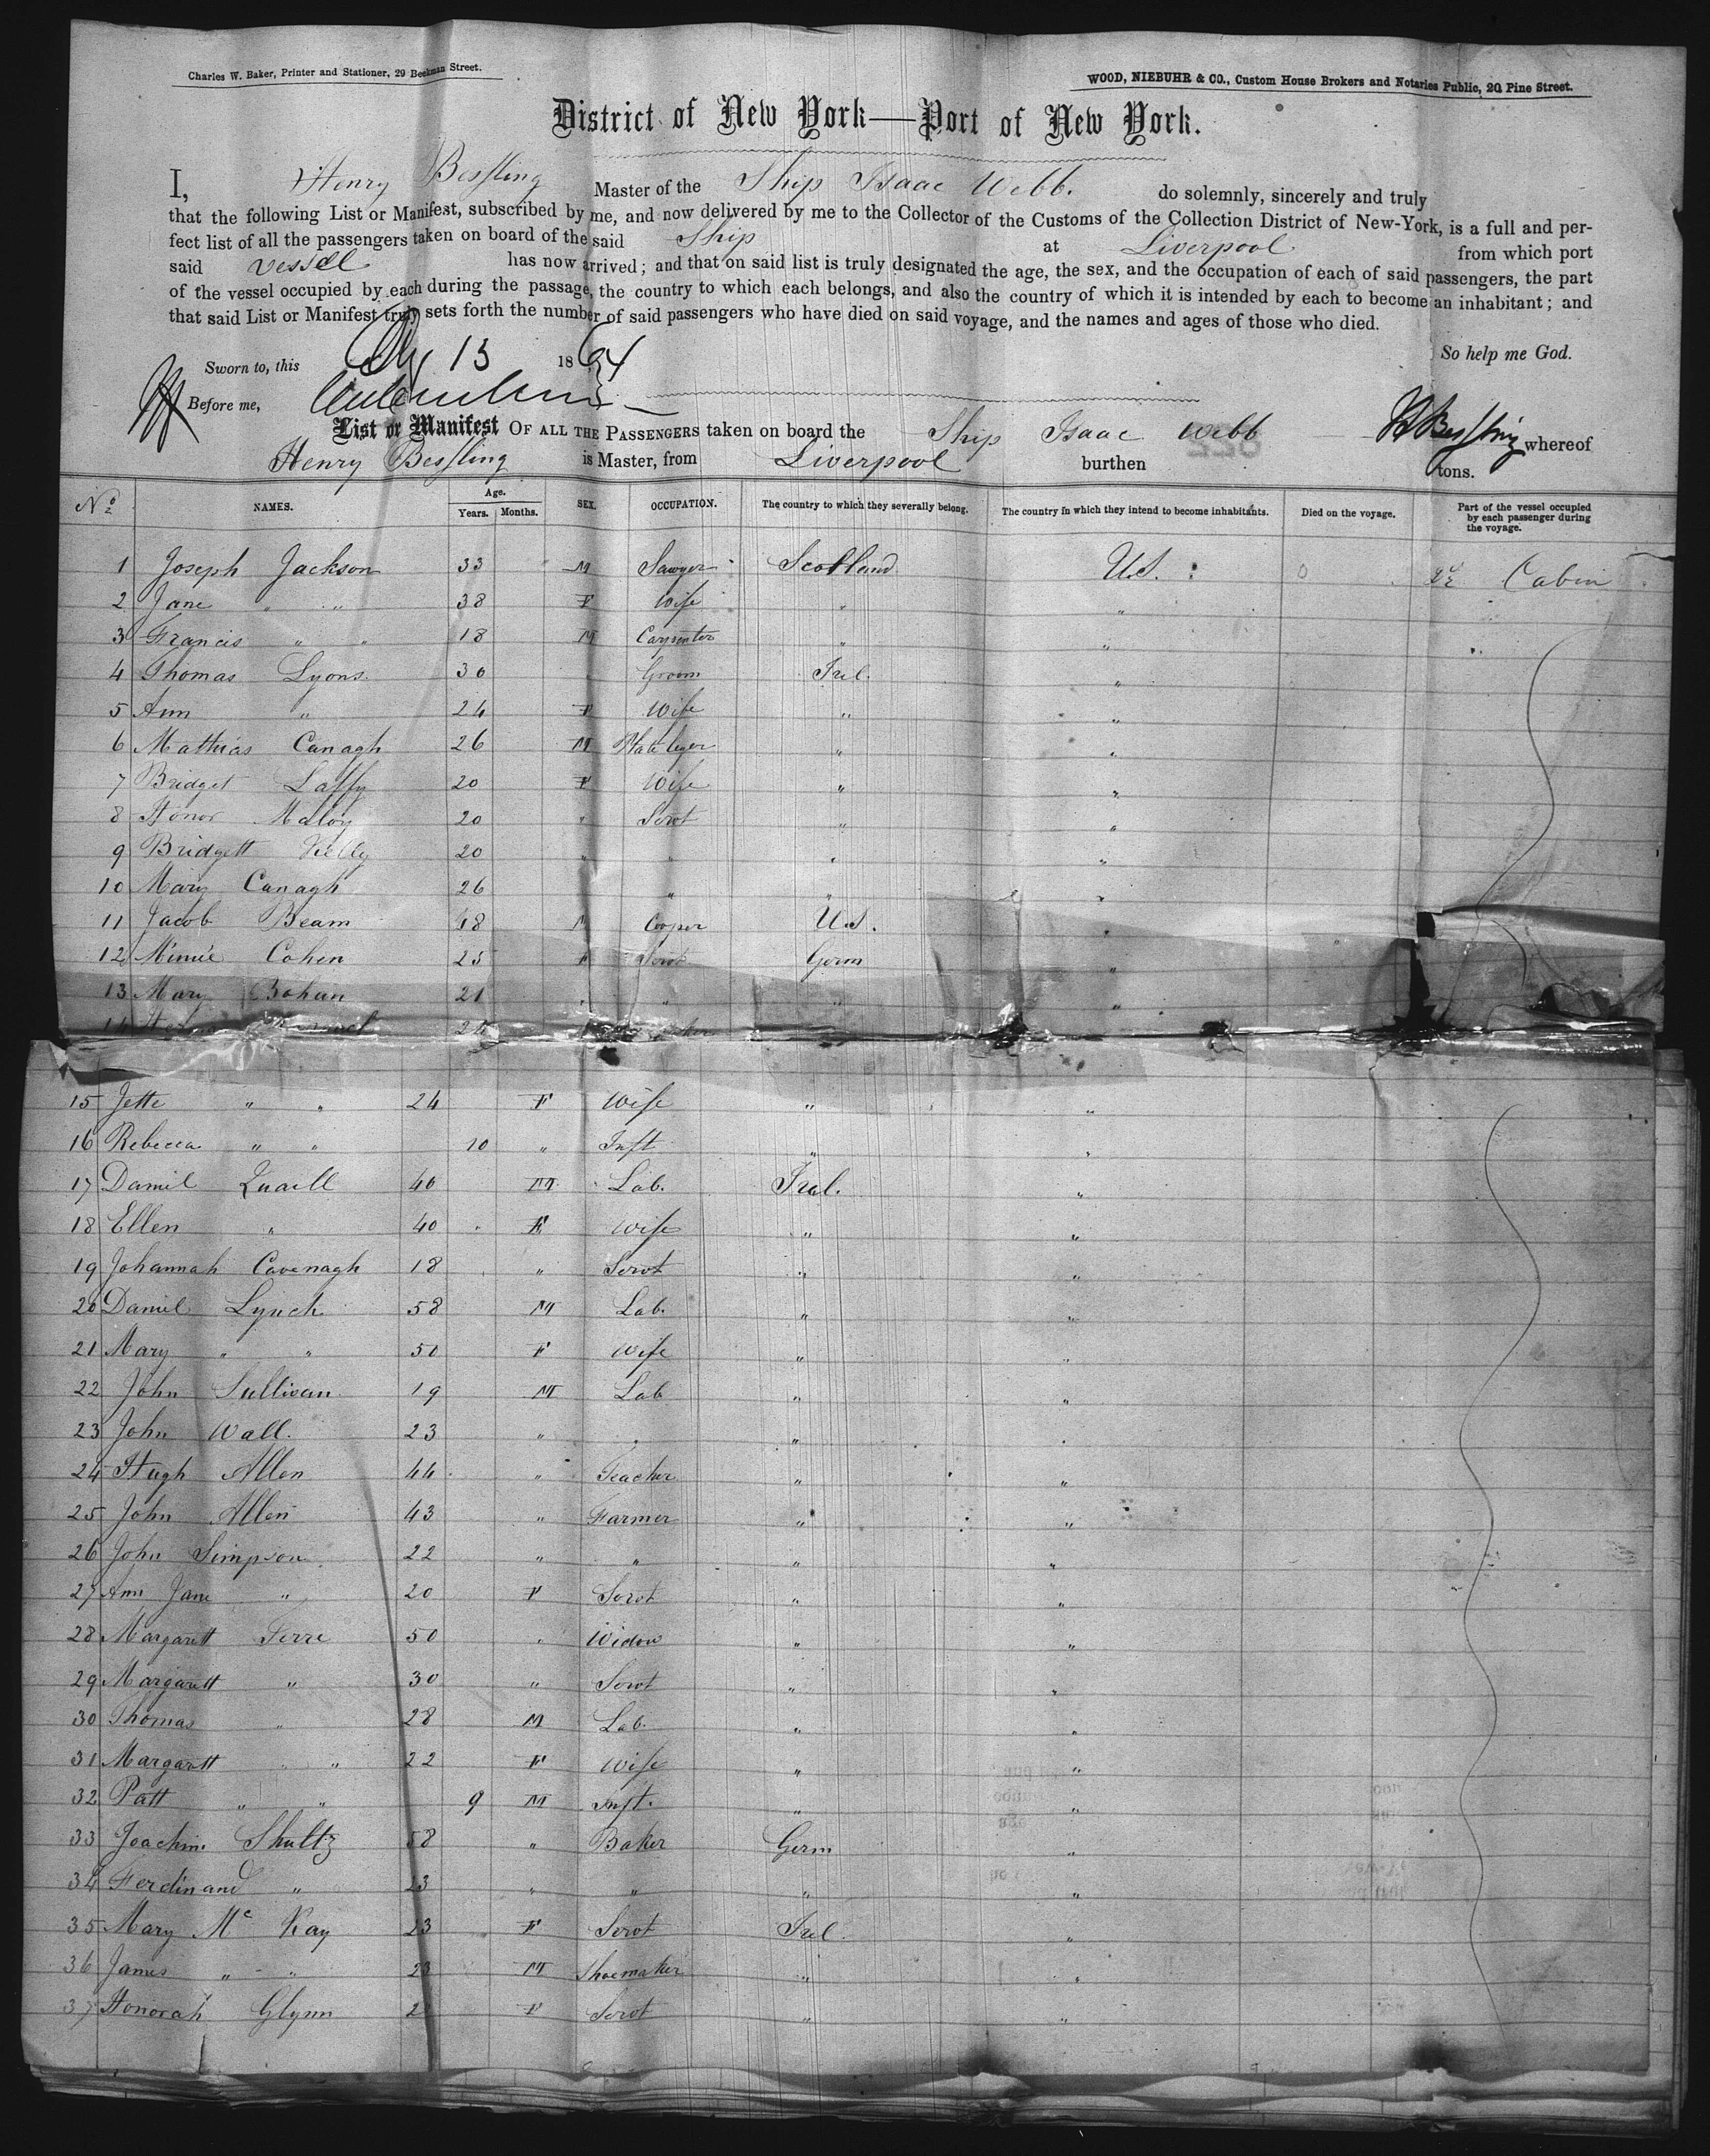 Charles W. Baker, Printer and Stationer, 29 Beekman Street.
WOOD, NIEBUHR & CO., Custom House Brokers and Notaries Public, 20 Pine Street.
District of New York—Port of New York.
I, Henry Bessling Master of the Ship Isaac Webb. do solemnly, sincerely and truly
that the following List or Manifest, subscribed by me, and now delivered by me to the Collector of the Customs of the Collection District of New-York, is a full and per-
fect list of all the passengers taken on board of the said Ship at Liverpool from which port
said vessel has now arrived; and that on said list is truly designated the age, the sex, and the occupation of each of said passengers, the part
of the vessel occupied by each during the passage, the country to which each belongs, and also the country of which it is intended by each to become an inhabitant; and
that said List or Manifest truly sets forth the number of said passengers who have died on said voyage, and the names and ages of those who died.
So help me God.
Sworn to, this 13 1864
Before me,
List or Manifest OF ALL THE PASSENGERS taken on board the Ship Isaac Webb H Bessling whereof
Henry Bessling is Master, from Liverpool burthen tons.
No NAMES. Age. Years. Months. SEX. OCCUPATION. The country to which they severally belong. The country in which they intend to become inhabitants. Died on the voyage. Part of the vessel occupied by each passenger during the voyage.
1 Joseph Jackson 33 M Sawyer Scotland U.S. 0 Cabin
2 Jane " " 38 F Wife " "
3 Francis " " 18 M Carpenter " "
4 Thomas Lyons 30 Groom Irel. "
5 Ann " 24 F Wife " "
6 Mathias Canagh 26 M " "
7 Bridget Laffy 20 F Wife " "
8 Honor Maloy 20 " Servt " "
9 Bridgett Kelly 20 " " " "
10 Mary Canagh 26 " " "
11 Jacob Beam 48 M Cooper U.S. "
12 Minnie Cohen 25 F Servt Germ "
13 Mary Bohan 21 " " " "
14
15 Jette " " 24 F Wife " "
16 Rebecca " " 10 " Inft " "
17 Daniel Quaill 40 M Lab. Irel. "
18 Ellen " 40 F Wife " "
19 Johannah Cavenagh 18 " Servt " "
20 Daniel Lynch 58 M Lab. " "
21 Mary " " 50 F Wife " "
22 John Sullivan 19 M Lab " "
23 John Wall. 23 " " " "
24 Hugh Allen 44 " Teacher " "
25 John Allen 43 " Farmer " "
26 John Simpson 22 " " " "
27 Ann Jane " 20 F Servt " "
28 Margarett Ferre 50 " Widow " "
29 Margarett " 30 " Servt " "
30 Thomas " 28 M Lab. " "
31 Margarett " " 22 F Wife " "
32 Patt " " 9 M Inft. " "
33 Joachim Shultz 58 " Baker Germ "
34 Ferdinand " 23 " " " "
35 Mary Mc Kay 23 F Servt Irel. "
36 James " " 23 M Shoemaker " "
37 Honorah Glynn F Servt " "